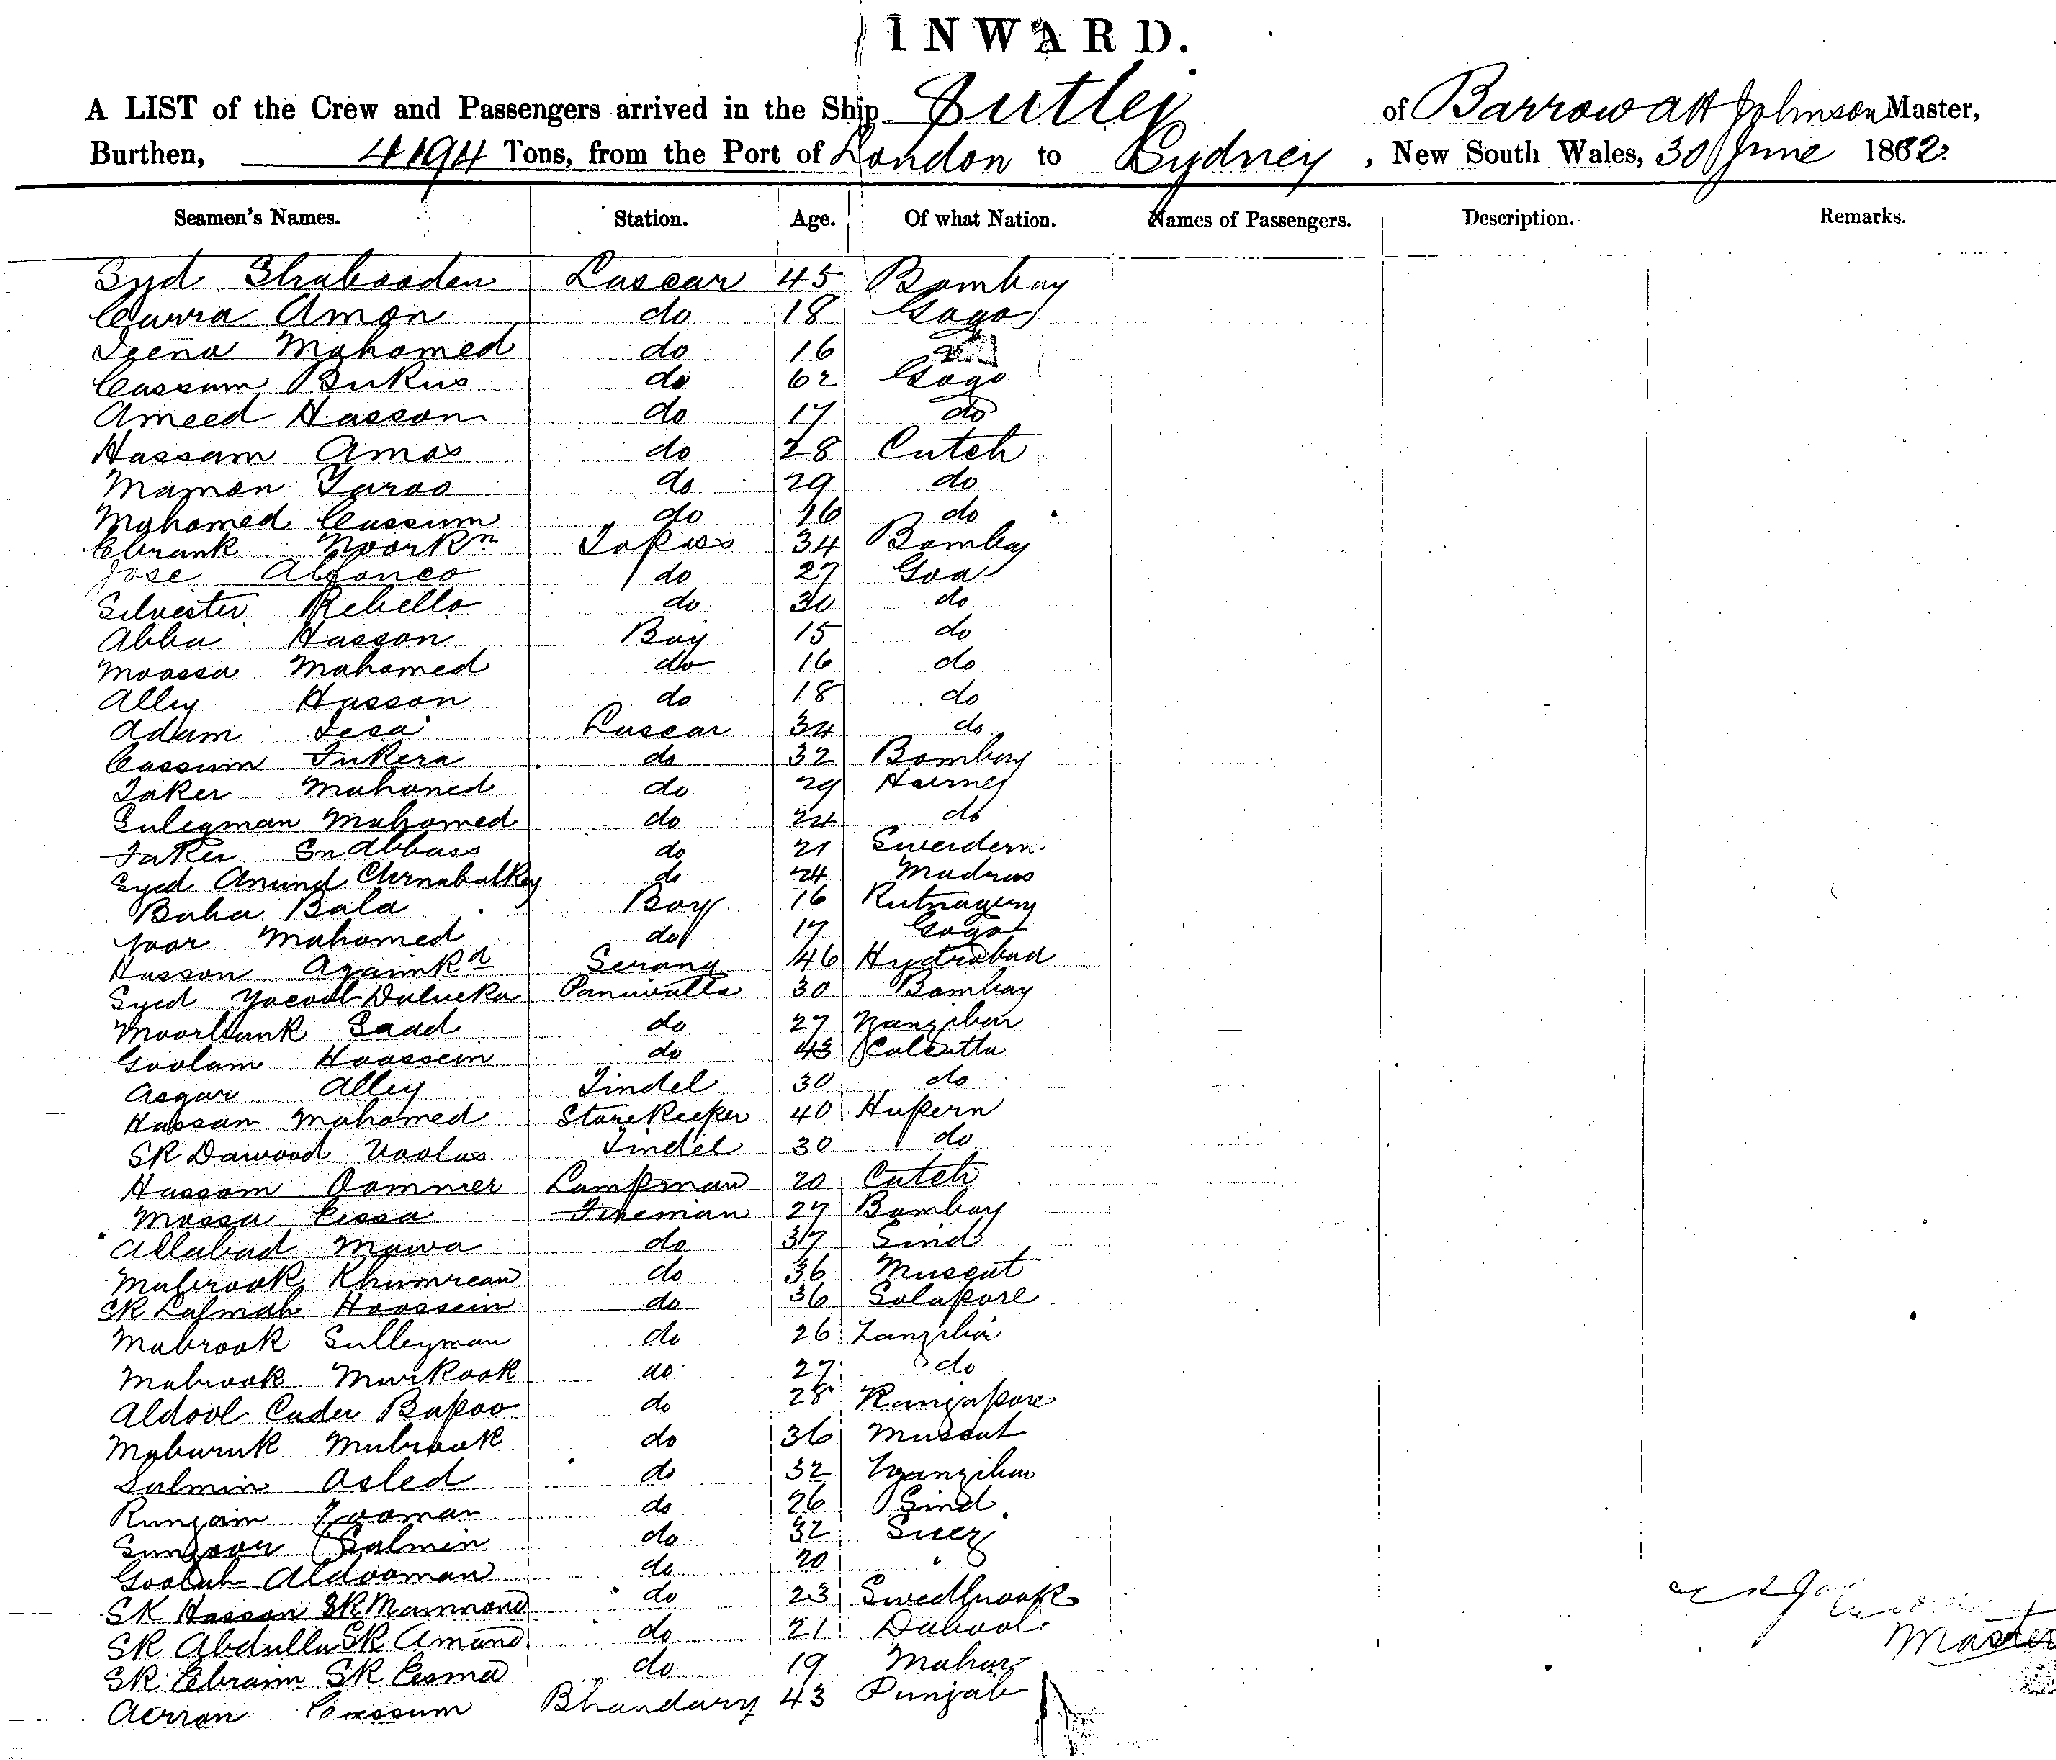 INWARD.
A LIST of the Crew and Passengers arrived in the Ship Sutlej of Barrow A H Johnson Master,
Burthen, 4194 Tons, from the Port of London to Sydney, New South Wales, 30 June 1882.
Seamen's Names. Station. Age. Of what Nation. Names of Passengers. Description. Remarks.
Syd Shabooden Lascar 45 Bombay
Curra Amon do 18 Gogo
Jeena Mahomed do 16
Cassum Bukus do 62 Gogo
Ameed Hasson do 17 do
Hassam Amos do 28 Cutch
Mamon do 29 do
Mahomed Cassum do 16 do
Ebrank Noorkn Topass 34 Bombay
Jose Alfonco do 27 Goa
Silvester Rebello do 30 do
Abba Hasson Boy 15 do
Moossa Mahomed do 16 do
Alley Hasson do 18 do
Adam Lesa Lascar 34 do
Cassum Fukera do 32 Bombay
Faker Mahomed do 29 Hurney
Suleyman Mahomed do 24 do
Faker Sn Abbass do 21
Syed Amind do 24 Madras
Baba Bala Boy 16 Rutnagery
Noor Mahomed do 17 Gogo
Hasson Agaimkd Serang 46 Hydrabad
Syed Yacoob Dalueka Paniwalla 30 Bombay
Moorbank Saad do 27 Zanzibar
Goolam Hoossein do 43 Calcutta
Asgar Alley Tindel 30 do
Hassan Mahomed Storekeeper 40 Hupern
SK Dawood Tindel 30 do
Hassam Oommer Lampman 20 Cutch
Mossa Eissa Fireman 27 Bombay
Allabad Mawa do 37 Sind
Mabrook Khumrean do 36 Muscat
SK Lalmah Hoossein do 36 Solapore
Mabrook Sulleyman do 26 Zanzibar
Mabrook Murkook do 27 do
Aldool Cader Bapoo do 28 Ranjapore
Maburuk Mubrook do 36 Muscat
Salmin Asled do 32 Zanzibar
Runjam do 26 Sind
Sungoor Salmin do 32 Suez
Goolab Aldooman do 20 "
SK Hasson SK Mammond do 23
SK Abdulla SK Amand do 21 Dabool
SK Ebraim SK Eesma do 19 Mahar
Aerron Cassum Bhandary 43 Punjab
Master